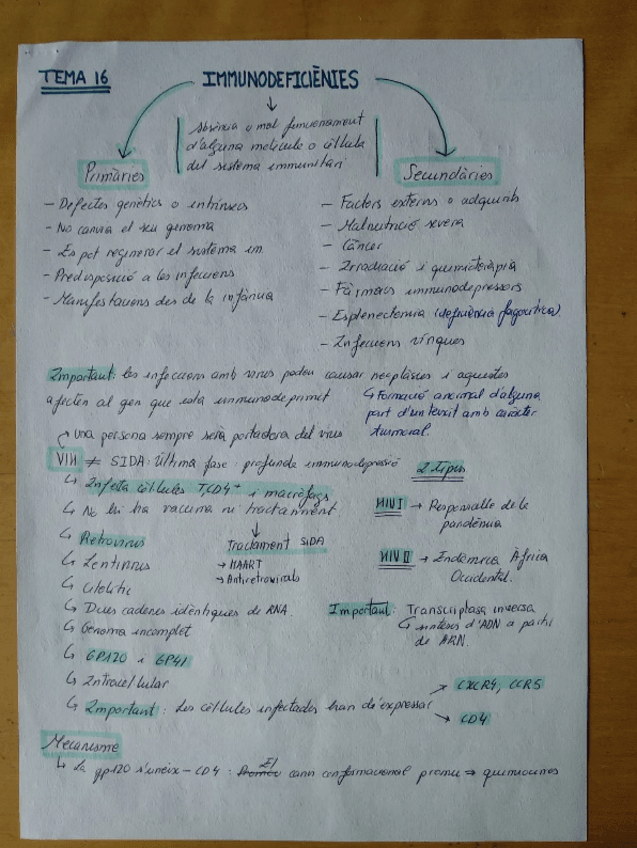 TEMA 16
IMMUNODEFICIÈNIES
Absència o mal funcionament
d'alguna molècula o cèl·lula
del sistema immunitari
Primàries
- Defectes genètics o intrínsecs
- No canvia el seu genoma
- Es pot regenerar el sistema im
- Predisposició a les infeccions
- Manifestacions des de la infància
Secundàries
- Factors externs o adquirits
- Malnutrició severa
- Càncer
- Irradiació i quimioteràpia
- Fàrmacs immunodepressors
- Esplenectomia (deficiència fagocítica)
- Infeccions víriques
Important: les infeccions amb virus poden causar neoplàsies i aquestes
afecten al gen que està immunodeprimit
↳ Formació anormal d'alguna
part d'un teixit amb caràcter
tumoral.
una persona sempre serà portadora del virus
VIH ≠ SIDA: Última fase: profunda immunodepressió
↳ Infecta cèl·lules TCD4+ i macròfags
↳ No hi ha vacuna ni tractament
↳ Retrovirus
↳ Lentivirus
↳ Citolític
↳ Dues cadenes idèntiques de RNA
↳ Genoma incomplet
↳ GP120 i GP41
↳ Intracel·lular
↳ Important: Les cèl·lules infectades han d'expressar
→ CXCR4, CCR5
→ CD4
Tractament SIDA
→ HAART
→ Antiretrovirals
2 tipus
HIV I → Responsable de la
pandèmia
HIV II → Endèmica Àfrica
Occidental.
Important: Transcriptasa inversa
↳ síntesi d'ADN a partir
de ARN.
Mecanisme
↳ La gp120 s'uneix - CD4: El canvi conformacional promu ⇒ quimiocines